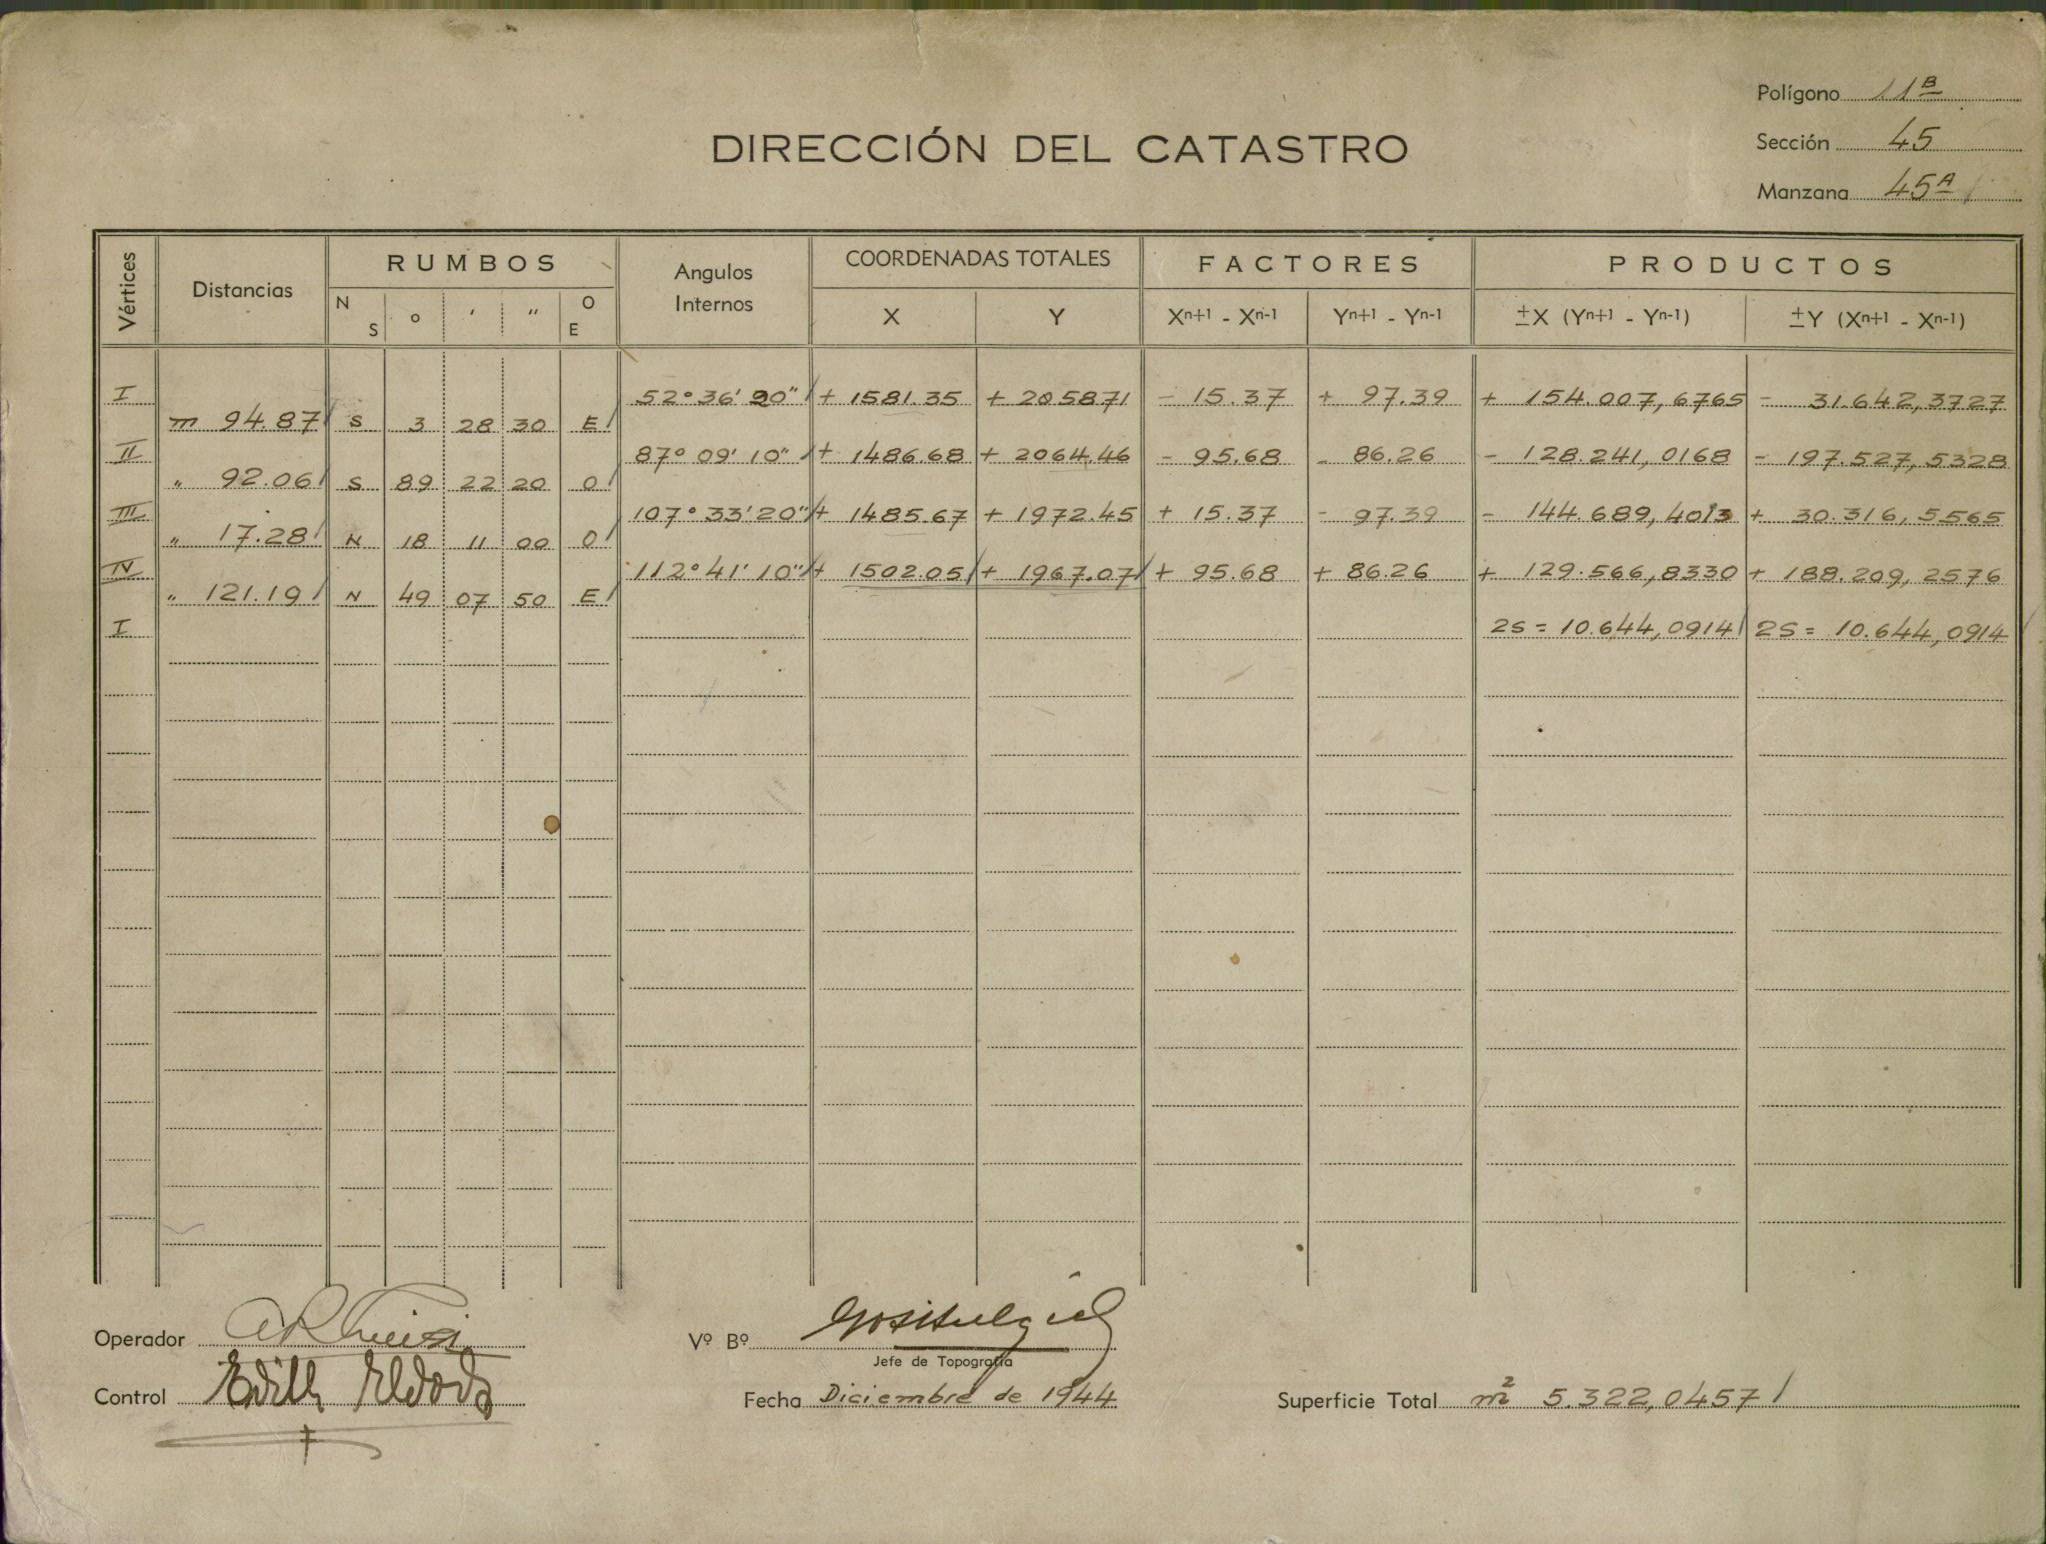 Polígono 11ᴮ
DIRECCIÓN DEL CATASTRO
Sección 45
Manzana 45ᴬ
Vértices Distancias RUMBOS Angulos Internos COORDENADAS TOTALES FACTORES PRODUCTOS
N S ° ' " O E X Y Xⁿ⁺¹ - Xⁿ⁻¹ Yⁿ⁺¹ - Yⁿ⁻¹ ±X (Yⁿ⁺¹ - Yⁿ⁻¹) ±Y (Xⁿ⁺¹ - Xⁿ⁻¹)
I 52° 36' 20" + 1581.35 + 2058.71 - 15.37 + 97.39 + 154.007,6765 - 31.642,3727
m 94.87 S 3 28 30 E
II 87° 09' 10" + 1486.68 + 2064.46 - 95.68 - 86.26 - 128.241,0168 - 197.527,5328
" 92.06 S 89 22 20 O
III 107° 33' 20" + 1485.67 + 1972.45 + 15.37 - 97.39 - 144.689,4013 + 30.316,5565
" 17.28 N 18 11 00 O
IV 112° 41' 10" + 1502.05 + 1967.07 + 95.68 + 86.26 + 129.566,8330 + 188.209,2576
" 121.19 N 49 07 50 E
I 2S = 10.644,0914 2S = 10.644,0914
Operador
Vº Bº
Jefe de Topografía
Control Edith
Fecha Diciembre de 1944
Superficie Total m² 5.322,0457